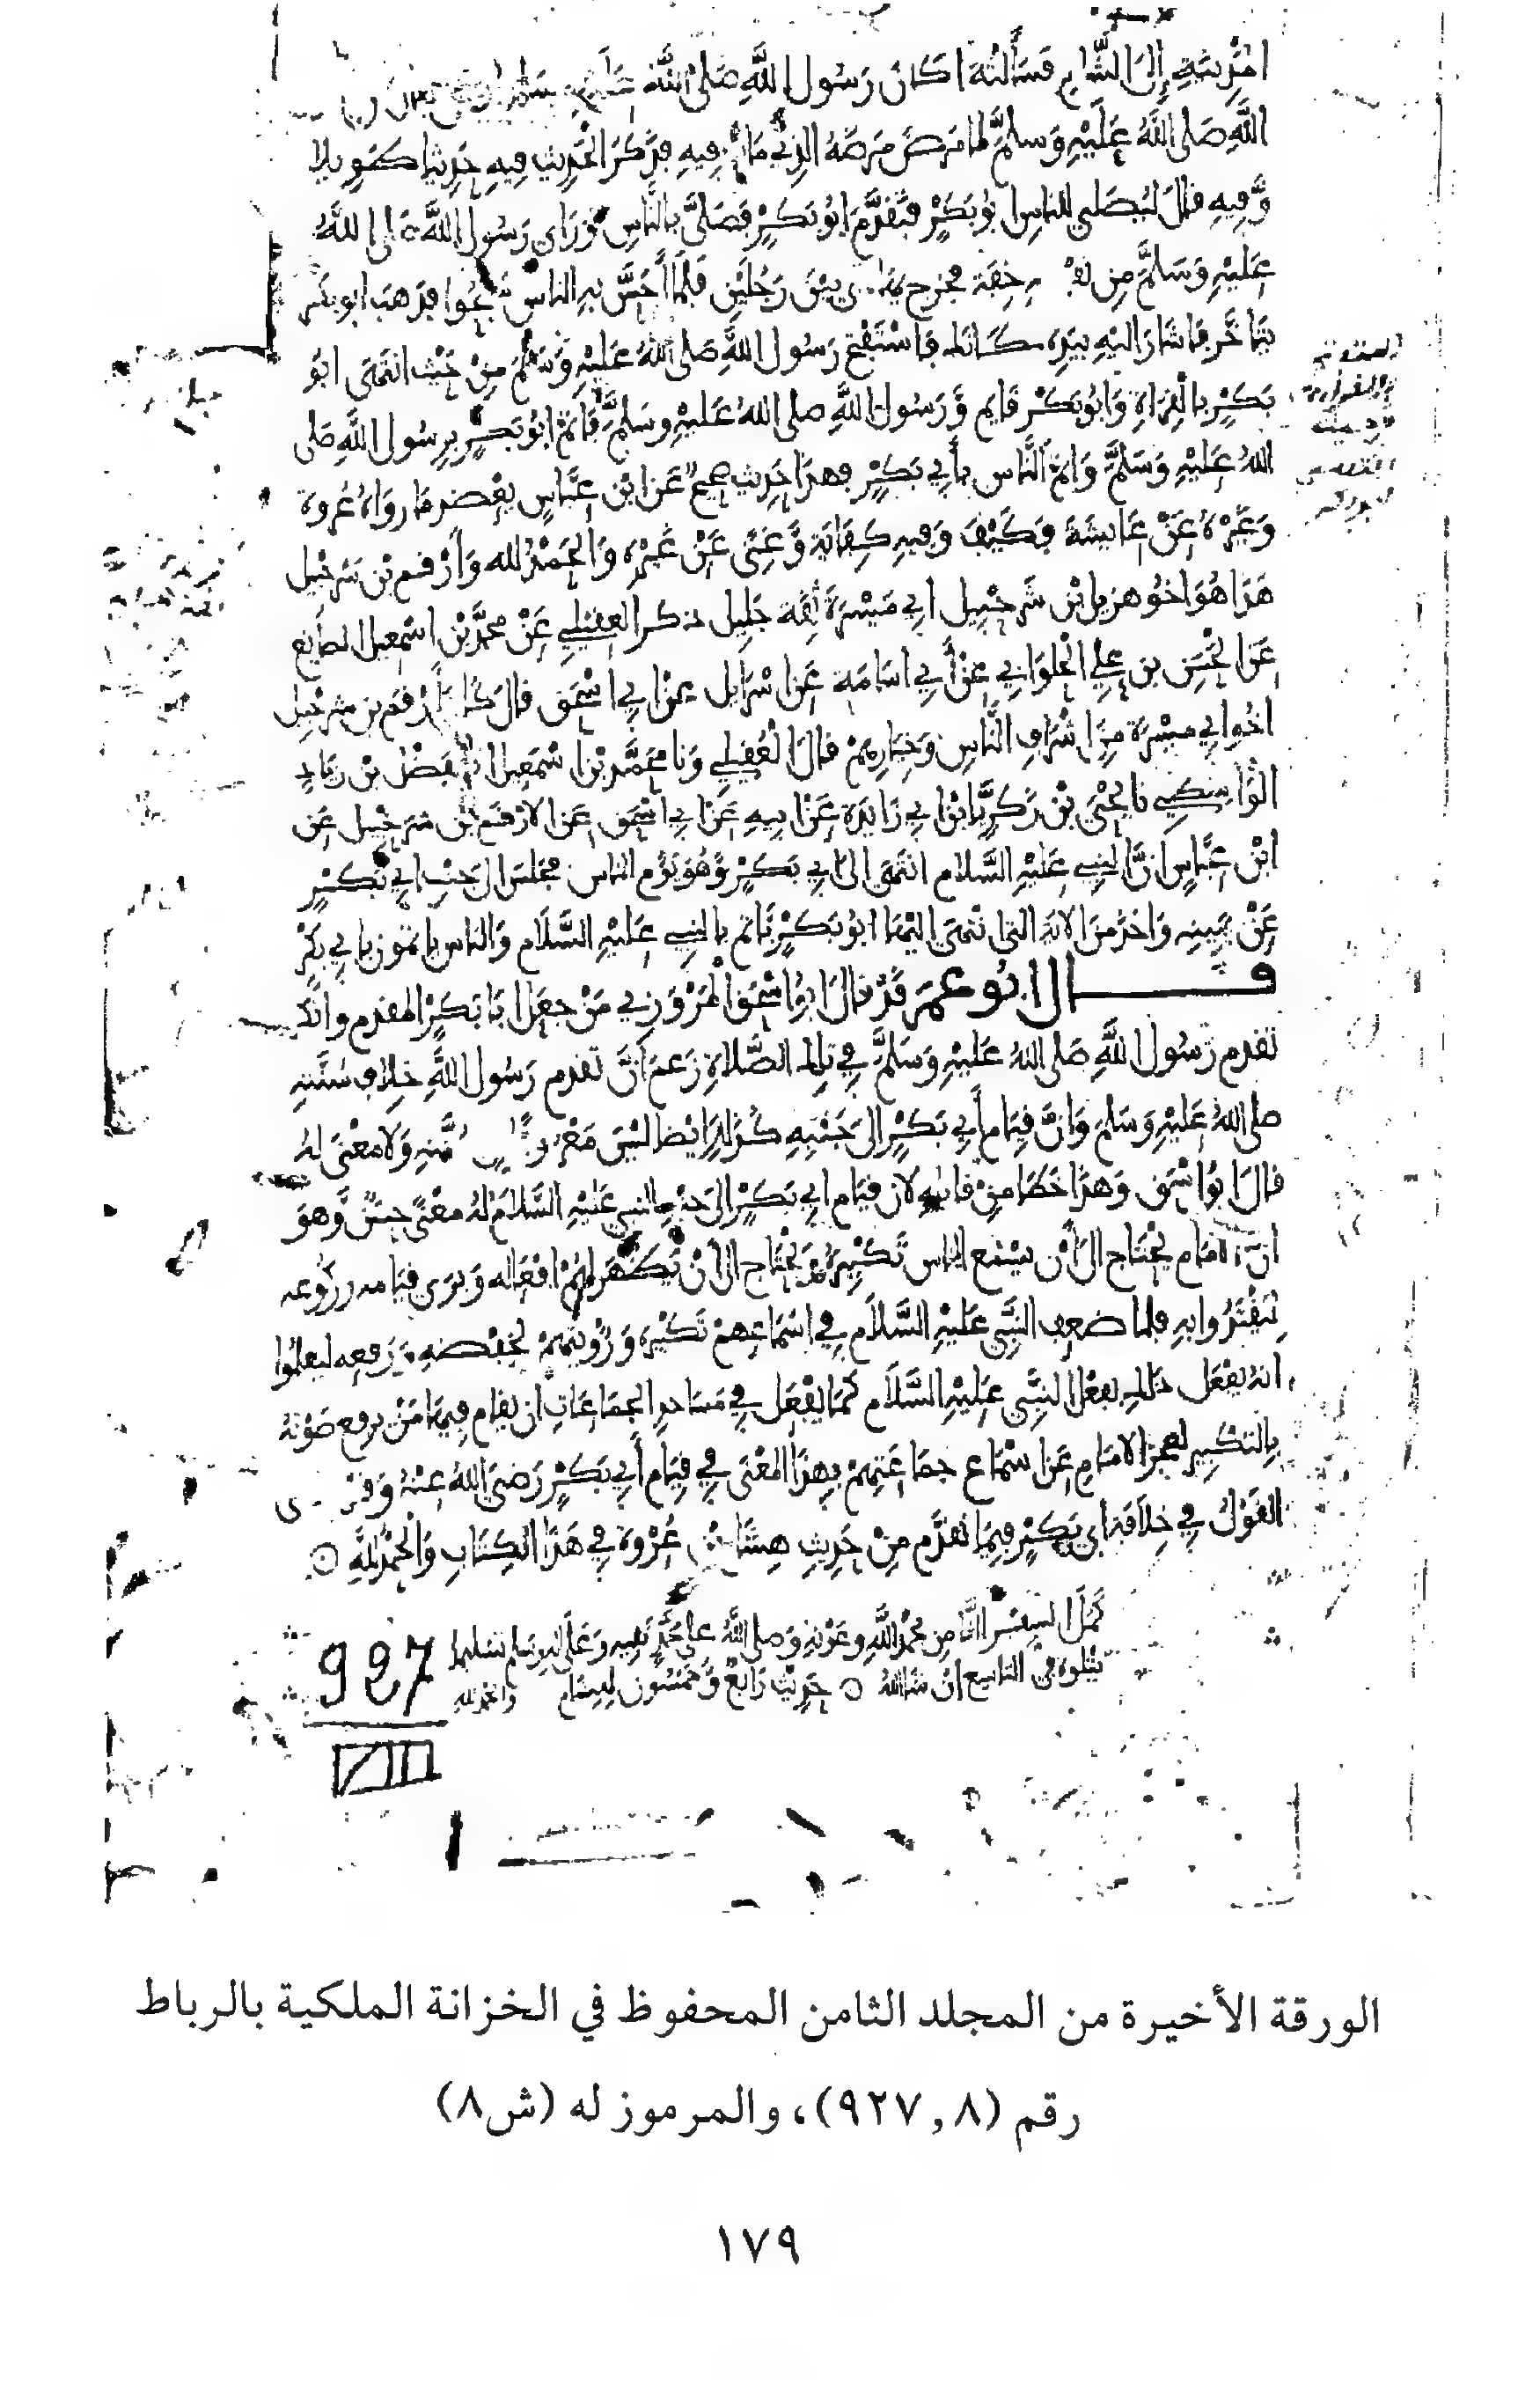 المدينة إلى الشام فسألته اكان رسول الله صلى الله
الله صلى الله عليه وسلم لما مرض مرضه الذي مات فيه فذكر الحديث فيه حديثا طويلا
وفيه قال ليصلي للناس ابو بكر فتقدم ابو بكر فصلى بالناس ورأى رسول الله صلى الله
عليه وسلم من نفسه خفة فخرج يهادى بين رجلين فلما أحس به الناس سبحوا فذهب ابو بكر
يتأخر فاشار اليه بيده مكانك فاستفتح رسول الله صلى الله عليه وسلم من حيث انتهى ابو
بكر بالقراة وابو بكر قايم ورسول الله صلى الله عليه وسلم فاتم ابو بكر برسول الله صلى
الله عليه وسلم واتم الناس بأبي بكر فهذا حديث صحيح عن ابن عباس يعضد ما رواه عروة
وغيره عن عايشة وكيف وفيه كفاية وغنى عن غيره والحمد لله وأرقم بن شرحبيل
هذا هو اخو هزيل بن شرحبيل ابي ميسرة ثقة جليل ذكر العقيلي عن محمد بن اسمعيل الصايغ
عن الحسن بن علي الحلواني عن أبي اسامة عن اسرايل عن ابي اسحق قال كان أرقم بن شرحبيل
اخو ابي ميسرة من اشراف الناس وخيارهم قال العقيلي ونا محمد بن اسمعيل نا الفضل بن زياد
الواسطي نا يحيى بن زكريا بن ابي زايدة عن ابيه عن ابي اسحق عن الارقم بن شرحبيل عن
ابن عباس ان النبي عليه السلام انتهى الى ابي بكر وهو يؤم الناس فجلس الى جنب ابي بكر
عن يمينه واخذ من الاية التي انتهى اليها ابو بكر فاتم بالنبي عليه السلام والناس ياتمون بابي بكر
قال ابو عمر قد قال ابو اسحق المروزي من جعل ابا بكر المقدم وانكر
تقدم رسول الله صلى الله عليه وسلم في تلك الصلاة زعم أن تقدم رسول الله خلاف سنته
صلى الله عليه وسلم وان قيام أبي بكر الى جنبه كذلك ايضا ليس معروفا من سنته ولا معنى له
قال ابو اسحق وهذا خطا من قايله لان قيام ابي بكر الى جنب النبي عليه السلام له معنى حسن وهو
ان الامام يحتاج الى أن يسمع الناس تكبيره ويحتاج الى أن تظهر لهم افعاله ويرى قيامه وركوعه
ليقتدوا به فلما ضعف النبي عليه السلام في اسماعهم تكبيره ورؤيتهم لخفضه ورفعه ليعلموا
انه يفعل ذلك بفعل النبي عليه السلام كما يفعل في مساجد الجماعات ان يقام فيها من يرفع صوته
بالتكبير لعجز الامام عن اسماع جماعتهم فهذا المعنى في قيام أبي بكر رضي الله عنه وقد
القول في خلافة ابي بكر فيما تقدم من حديث هشام بن عروة في هذا الكتاب والحمد لله
كمل السفر الثامن بحمد الله وعونه وصلى الله على محمد نبيه وعلى اله وسلم تسليما
يتلوه في التاسع ان شا الله حديث رابع وخمسون لهشام والحمد لله
927
VIII
الورقة الأخيرة من المجلد الثامن المحفوظ في الخزانة الملكية بالرباط
رقم (٩٢٧,٨)، والمرموز له (ش٨)
١٧٩